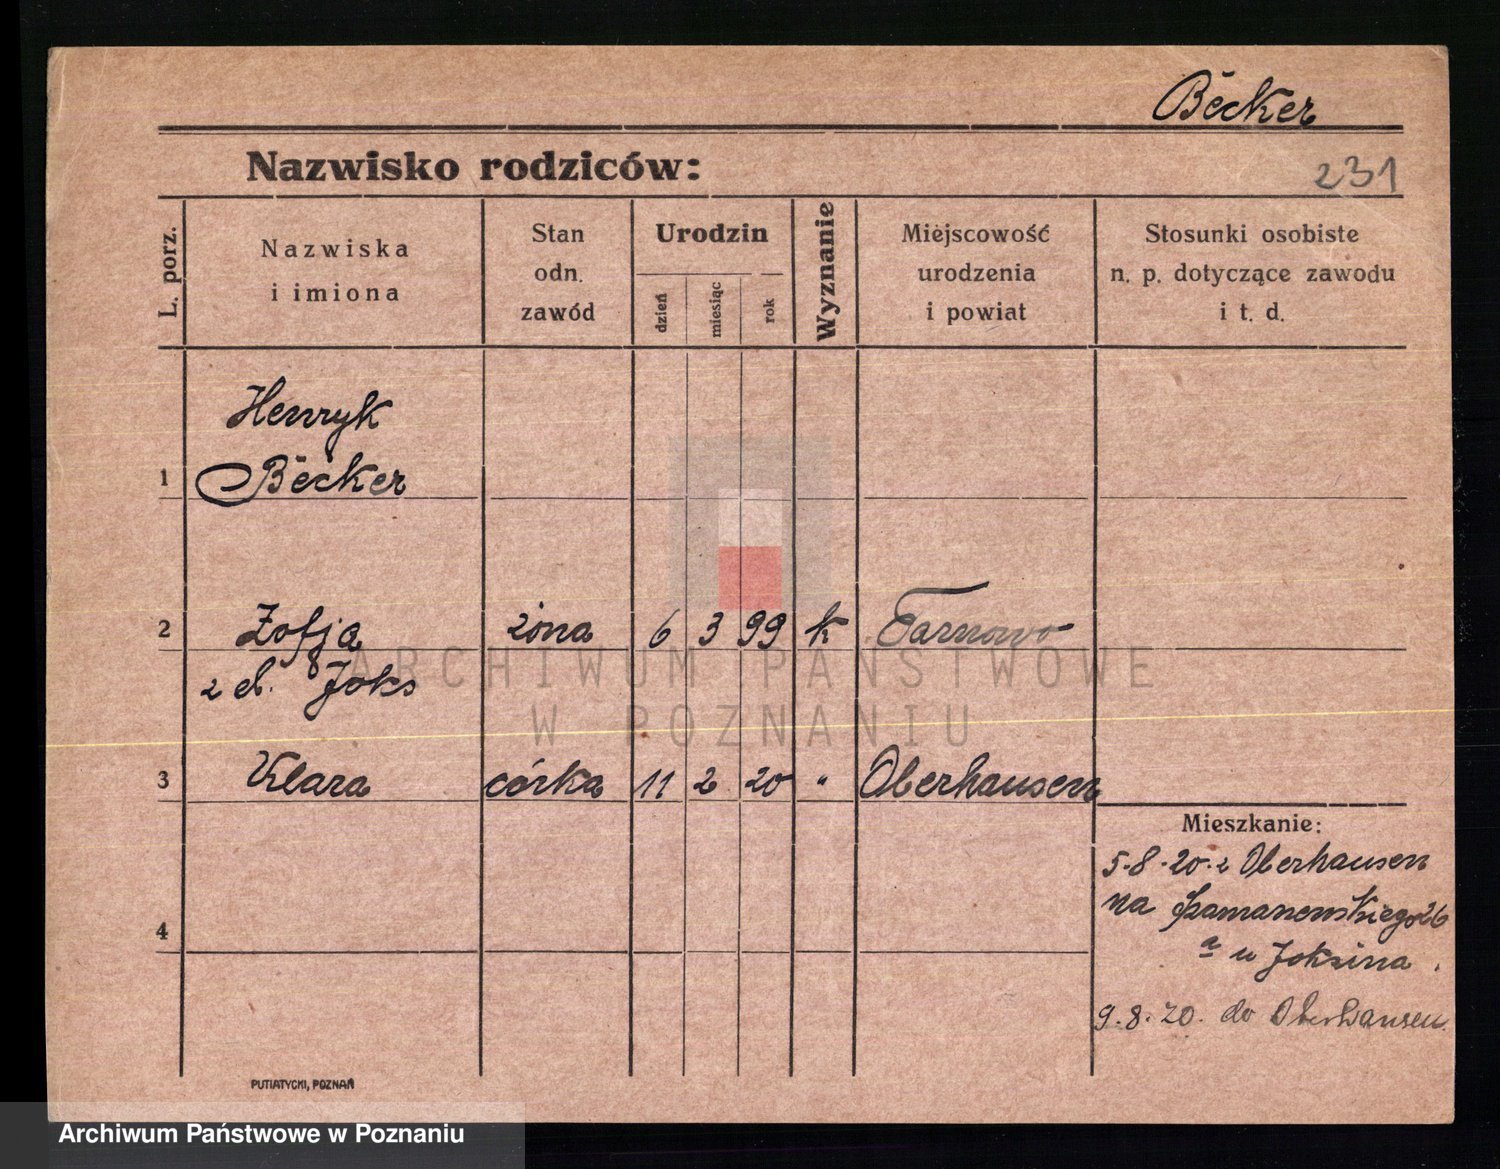 Bĕcker
Nazwisko rodziców:
231
L. porz.
Nazwiska
i imiona
Stan
odn.
zawód
Urodzin
dzień
miesiąc
rok
Wyznanie
Miejscowość
urodzenia
i powiat
Stosunki osobiste
n. p. dotyczące zawodu
i t. d.
Henryk
1 Bĕcker
2 Zofja żona 6 3 99 k Tarnowo
z d. Joks
ARCHIWUM PAŃSTWOWE
W POZNANIU
3 Klara córka 11 2 20 " Oberhausen
Mieszkanie:
5.8.20 z Oberhausen
na 26
4
a u Joksina
9.8.20. do Oberhausen
PUTIATYCKI, POZNAŃ
Archiwum Państwowe w Poznaniu